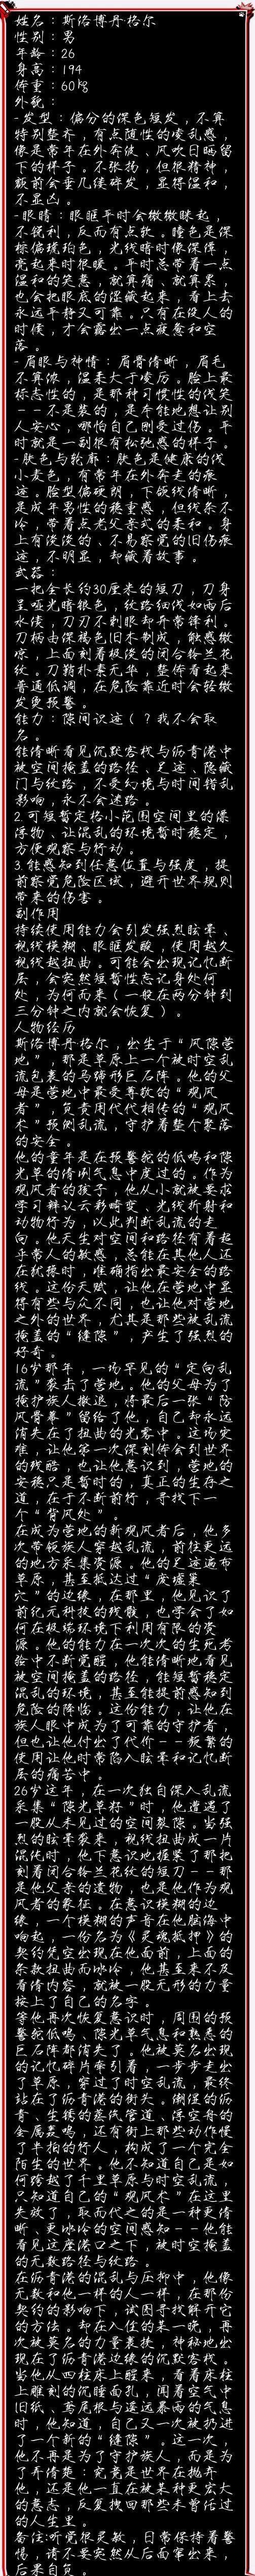 姓名：斯洛博丹·格尔
性别：男
年龄：26
身高：194
体重：60kg
外貌：
-发型：偏分的深色短发，不算
特别整齐，有点随性的凌乱感，
像是常年在外奔波、风吹日晒留
下的样子。不张扬，但很精神，
额前会垂几缕碎发，显得温和，
不显凶。
-眼睛：眼眶平时会微微眯起，
不锐利，反而有点软。瞳色是深
棕偏琥珀色，光线暗时像深潭，
亮起来时很暖。平时总带着一点
温和的笑意，就算痛、就算累，
也会把眼底的湿藏起来，看上去
永远平静又可靠。只有在没人的
时候，才会露出一点疲惫和空
落。
-眉眼与神情：眉骨清晰，眉毛
不算浓，温柔大于凌厉。脸上最
标志性的，是那种习惯性的浅笑
--不是装的，是本能地想让别
人安心，哪怕自己刚受过伤。平
时就是一副很有松弛感的样子。
-肤色与轮廓：肤色是健康的浅
小麦色，有常年在外奔走的痕
迹。脸型偏硬朗，下颌线清晰，
是成年男性的稳重感，但线条不
冷，带着点老父亲式的柔和。身
上有淡淡的、不易察觉的旧伤痕
迹，不明显，却藏着故事。
武器：
一把全长约30厘米的短刀，刀身
呈哑光暗银色，纹路细浅如雨后
水痕，刀刃不刺眼却异常锋利。
刀柄由深褐色旧木制成，触感微
凉，上面刻着极淡的闭合铃兰花
纹。刀鞘朴素无华，整体看起来
普通低调，在危险靠近时会轻微
发烫预警。
能力：隙间识途（？我不会取
名。
能清晰看见沉默客栈与沥青港中
被空间掩盖的路径、足迹、隐藏
门与纹路，不受幻境与时间错乱
影响，永不会迷路。
2.可短暂定格小范围空间里的漂
浮物、让混乱的环境暂时稳定，
方便观察与行动。
3.能感知到任意位置与强度，提
前察觉危险区域，避开世界规则
带来的伤害。
副作用
持续使用能力会引发强烈眩晕、
视线模糊、眼眶发酸，使用越久
视线越扭曲。可能会出现记忆断
层，会突然短暂性忘记身处何
处，为何而来（一般在两分钟到
三分钟之内就会恢复）。
人物经历
斯洛博丹·格尔，出生于“风隙营
地”，那是草原上一个被时空乱
流包裹的马蹄形巨石阵。他的父
母是营地中最受尊敬的“观风
者”，负责用代代相传的“观风
术”预测乱流，守护着整个聚落
的安全。
他的童年是在预警蛇的低鸣和隙
光草的清冽气息中度过的。作为
观风者的孩子，他从小就被要求
学习辨认云彩畸变、光线折射和
动物行为，以此判断乱流的走
向。他天生对空间和路径有着超
乎常人的敏感，总能在其他人还
在犹豫时，准确指出最安全的路
线。这份天赋，让他在营地中显
得有些与众不同，也让他对营地
之外的世界，尤其是那些被乱流
掩盖的“缝隙”，产生了强烈的
好奇。
16岁那年，一场罕见的“定向乱
流”袭击了营地。他的父母为了
掩护族人撤退，将最后一张“防
风骨幕”留给了他，自己却永远
消失在了扭曲的光雾中。这场灾
难，让他第一次深刻体会到世界
的残酷，也让他意识到，营地的
安稳只是暂时的，真正的生存之
道，在于不断前行，寻找下一
个“背风处”。
在成为营地的新观风者后，他多
次带领族人穿越乱流，前往更远
的地方采集资源。他的足迹遍布
草原，甚至抵达过“废墟巢
穴”的边缘，在那里，他见识了
前纪元科技的残骸，也学会了如
何在极端环境下利用有限的资
源。他的能力在一次次的生死考
验中不断觉醒，他能清晰地看见
被空间掩盖的路径，能短暂稳定
混乱的环境，甚至能提前感知到
危险的降临。这份能力，让他在
族人眼中成为了可靠的守护者，
但也让他付出了代价--频繁的
使用让他时常陷入眩晕和记忆断
层的痛苦中。
26岁这年，在一次独自深入乱流
采集“隙光草籽”时，他遭遇了
一股从未见过的空间裂隙。当强
烈的眩晕袭来，视线扭曲成一片
混沌时，他下意识地握紧了那把
刻着闭合铃兰花纹的短刀--那
是他父亲的遗物，也是他作为观
风者的象征。在意识模糊的边
缘，一个模糊的声音在他脑海中
响起，一份名为《灵魂抵押》的
契约凭空出现在他面前，上面的
条款扭曲而冰冷，他甚至来不及
看清内容，就被一股无形的力量
按上了自己的名字。
等他再次恢复意识时，周围的预
警蛇低鸣、隙光草气息和熟悉的
巨石阵都消失了。他被莫名出现
的记忆碎片牵引着，一步步走出
了草原，穿过了时空乱流，最终
站在了沥青港的街头。潮湿的沥
青、生锈的蒸汽管道、浮空舟的
金属轰鸣，还有街上那些动作慢
了半拍的行人，构成了一个完全
陌生的世界。他不知道自己是如
何跨越了千里草原与时空乱流，
只知道自己的“观风术”在这里
失效了，取而代之的是一种更清
晰、更冰冷的空间感知--他能
看见这座港口之下，被时空掩盖
的无数路径与纹路。
在沥青港的混乱与压抑中，他像
无数和他一样的人一样，在那份
契约的影响下，试图寻找解开它
的方法。却在入住的某一晚，再
次被莫名的力量裹挟，神秘地出
现在了沥青港边缘的沉默客栈。
当他从四柱床上醒来，看着床柱
上雕刻的沉睡面孔，闻着空气中
旧纸、鸢尾根与遥远暴雨的气息
时，他知道，自己又一次被扔进
了一个新的“缝隙”。这一次，
他不再是为了守护族人，而是为
了弄清楚：究竟是世界在抛弃
他，还是他一直在被某种更宏大
的意志，反复拽回那些未曾活过
的人生里。
备注：听觉很灵敏，日常保持着警
惕，请不要突然从后面窜出来，
后果自负。